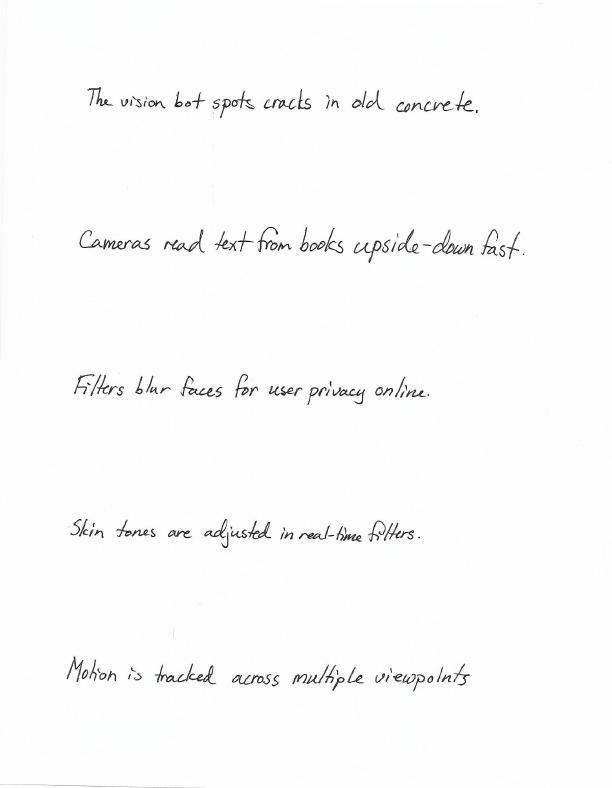 The vision bot spots cracks in old concrete.
Cameras read text from books upside-down fast.
Filters blur faces for user privacy online.
Skin tones are adjusted in real-time filters.
Motion is tracked across multiple viewpoints